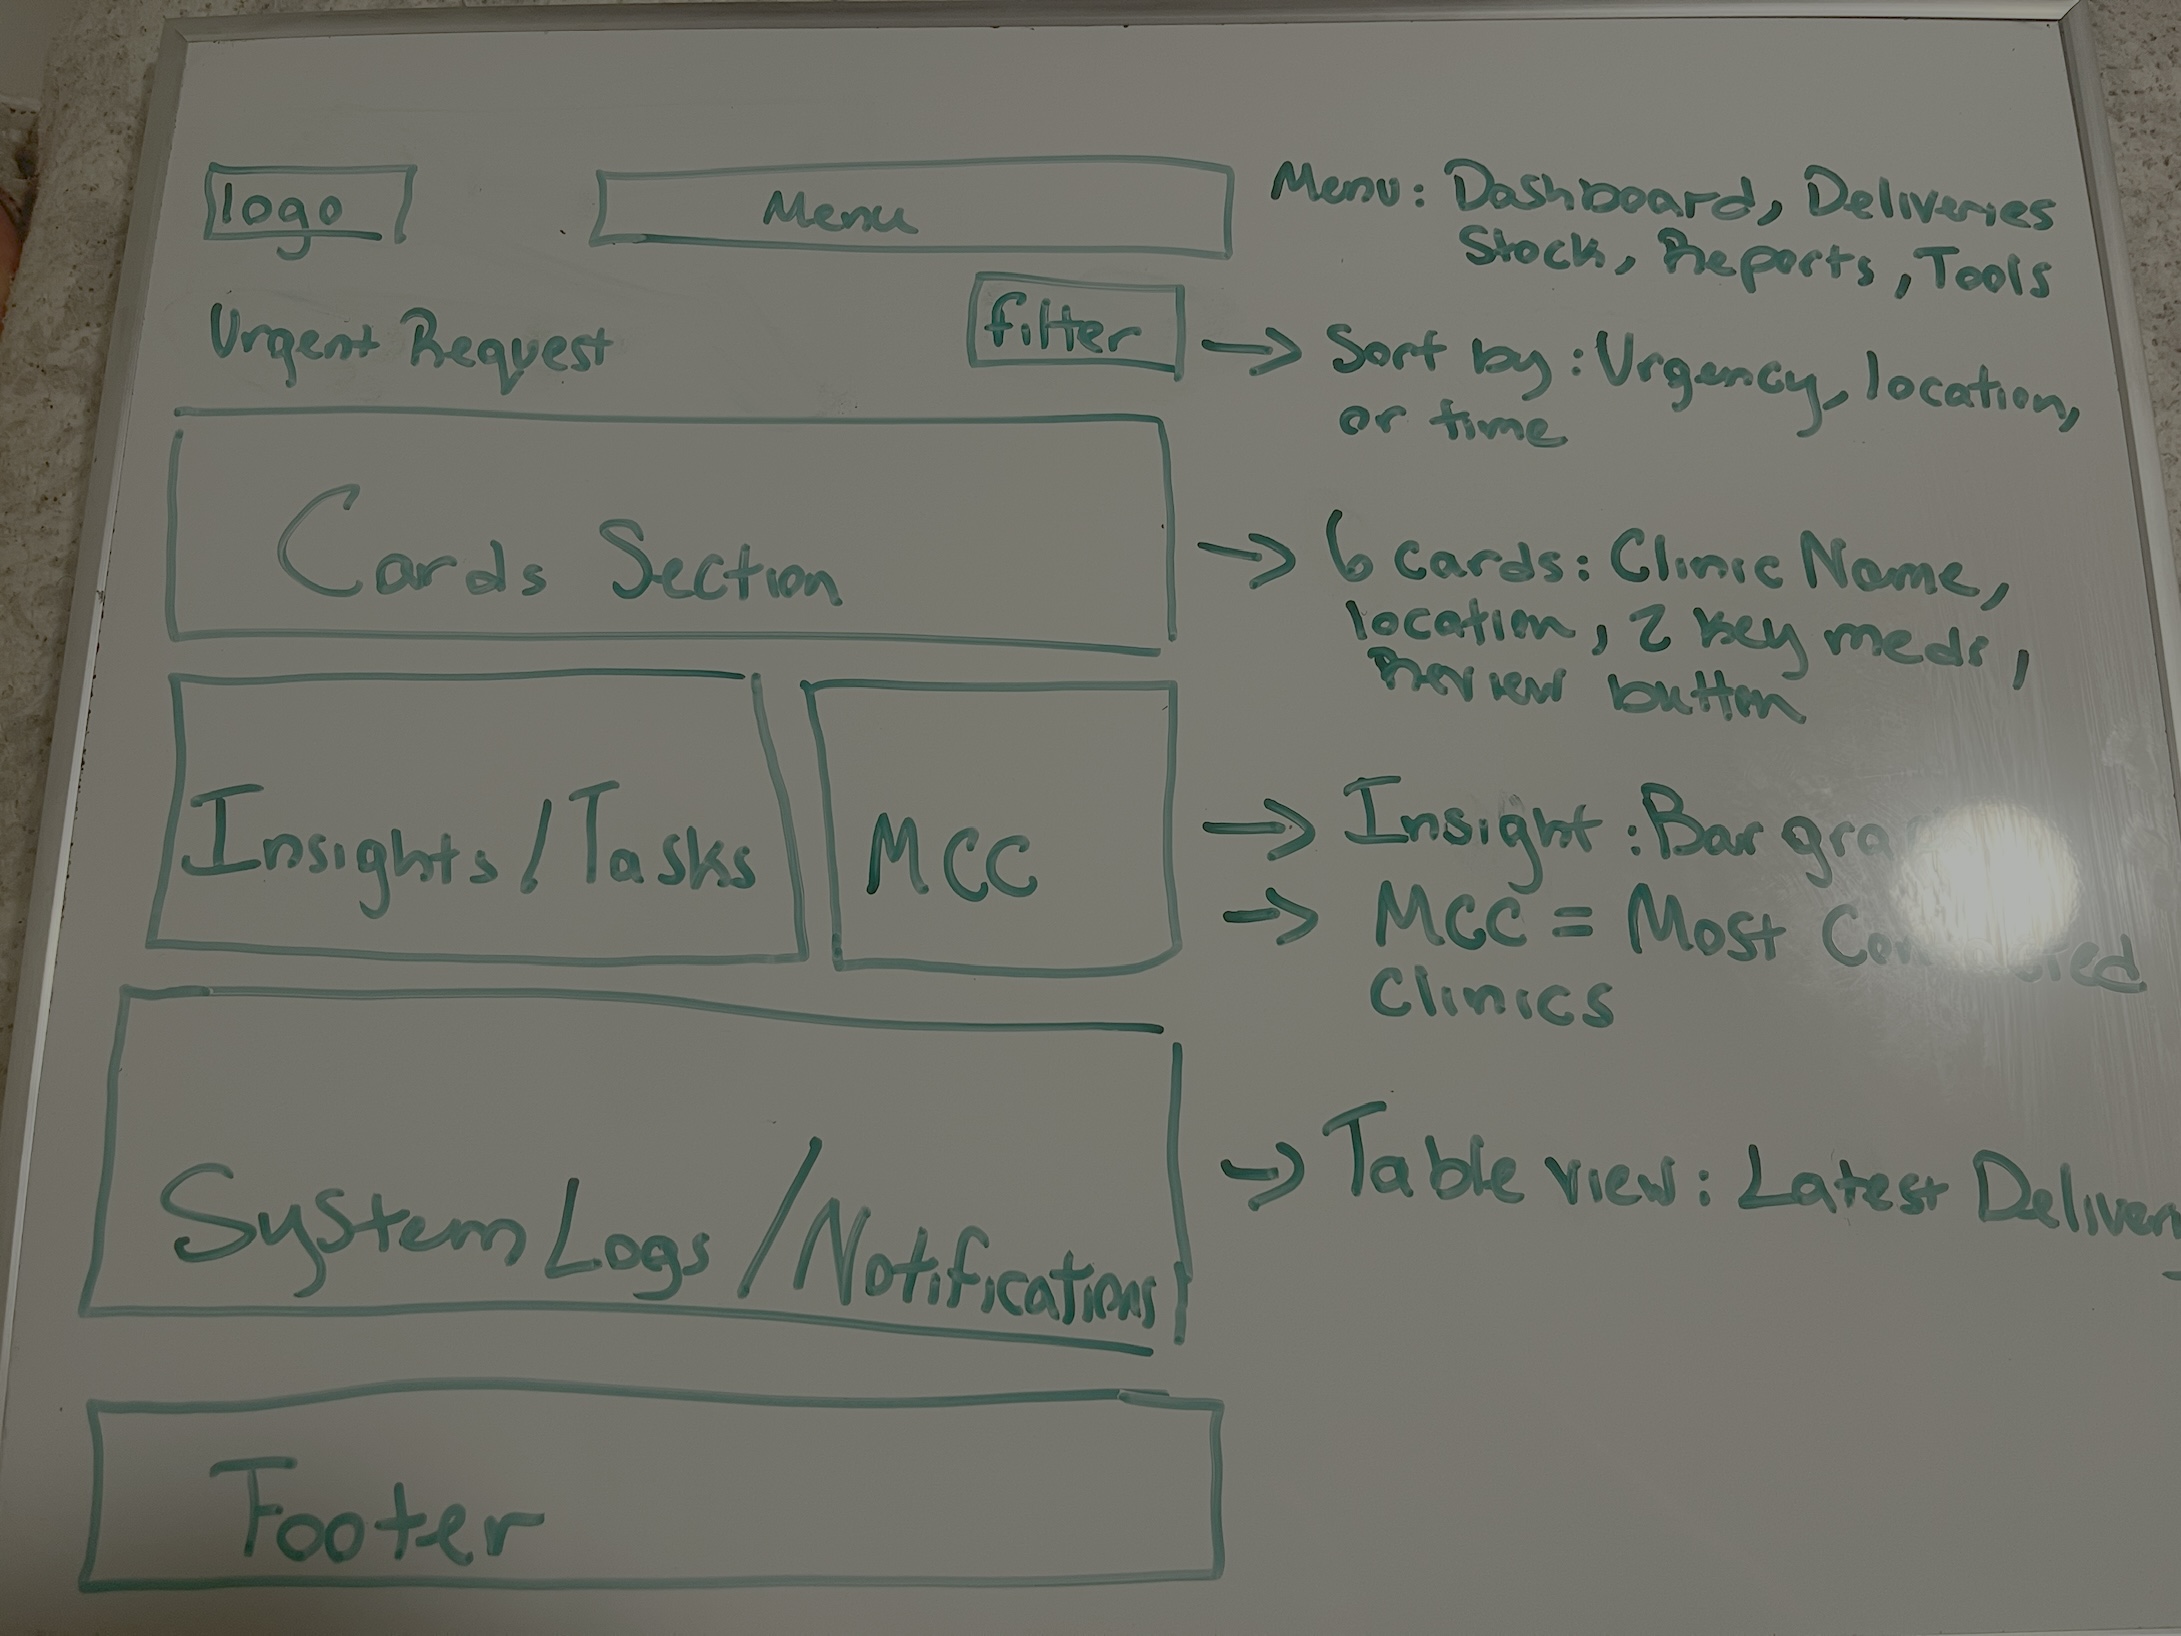 logo
Menu
Menu: Dashboard, Deliveries
Stock, Reports, Tools
Urgent Request
filter
→ Sort by: Urgency, location,
or time
Cards Section
→ 6 cards: Clinic Name,
location, 2 key meds,
Review button
Insights / Tasks
MCC
→ Insight: Bar
→ MCC = Most
Clinics
System Logs / Notifications
→ Table view: Latest
Footer